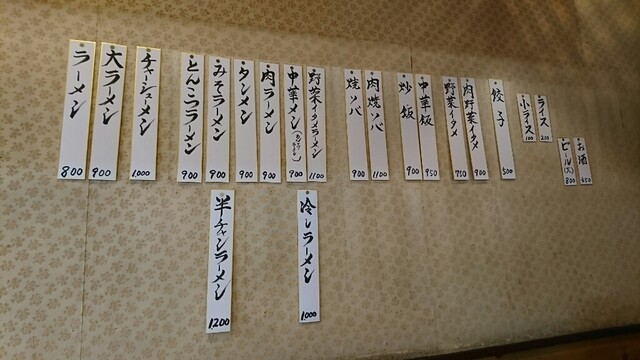 ラーメン 800
大ラーメン 900
チャーシューメン 1,000
とんこつラーメン 900
みそラーメン 900
タンメン 900
肉ラーメン 900
中華メン 900
野菜イタメラーメン 1100
焼ソバ 900
肉焼ソバ 1100
炒飯 900
中華飯 950
野菜イタメ 750
肉野菜イタメ 900
餃子 500
小ライス 100
ライス 200
ビール(大) 800
お酒 450
半チャンラーメン 1,200
冷しラーメン 1,000